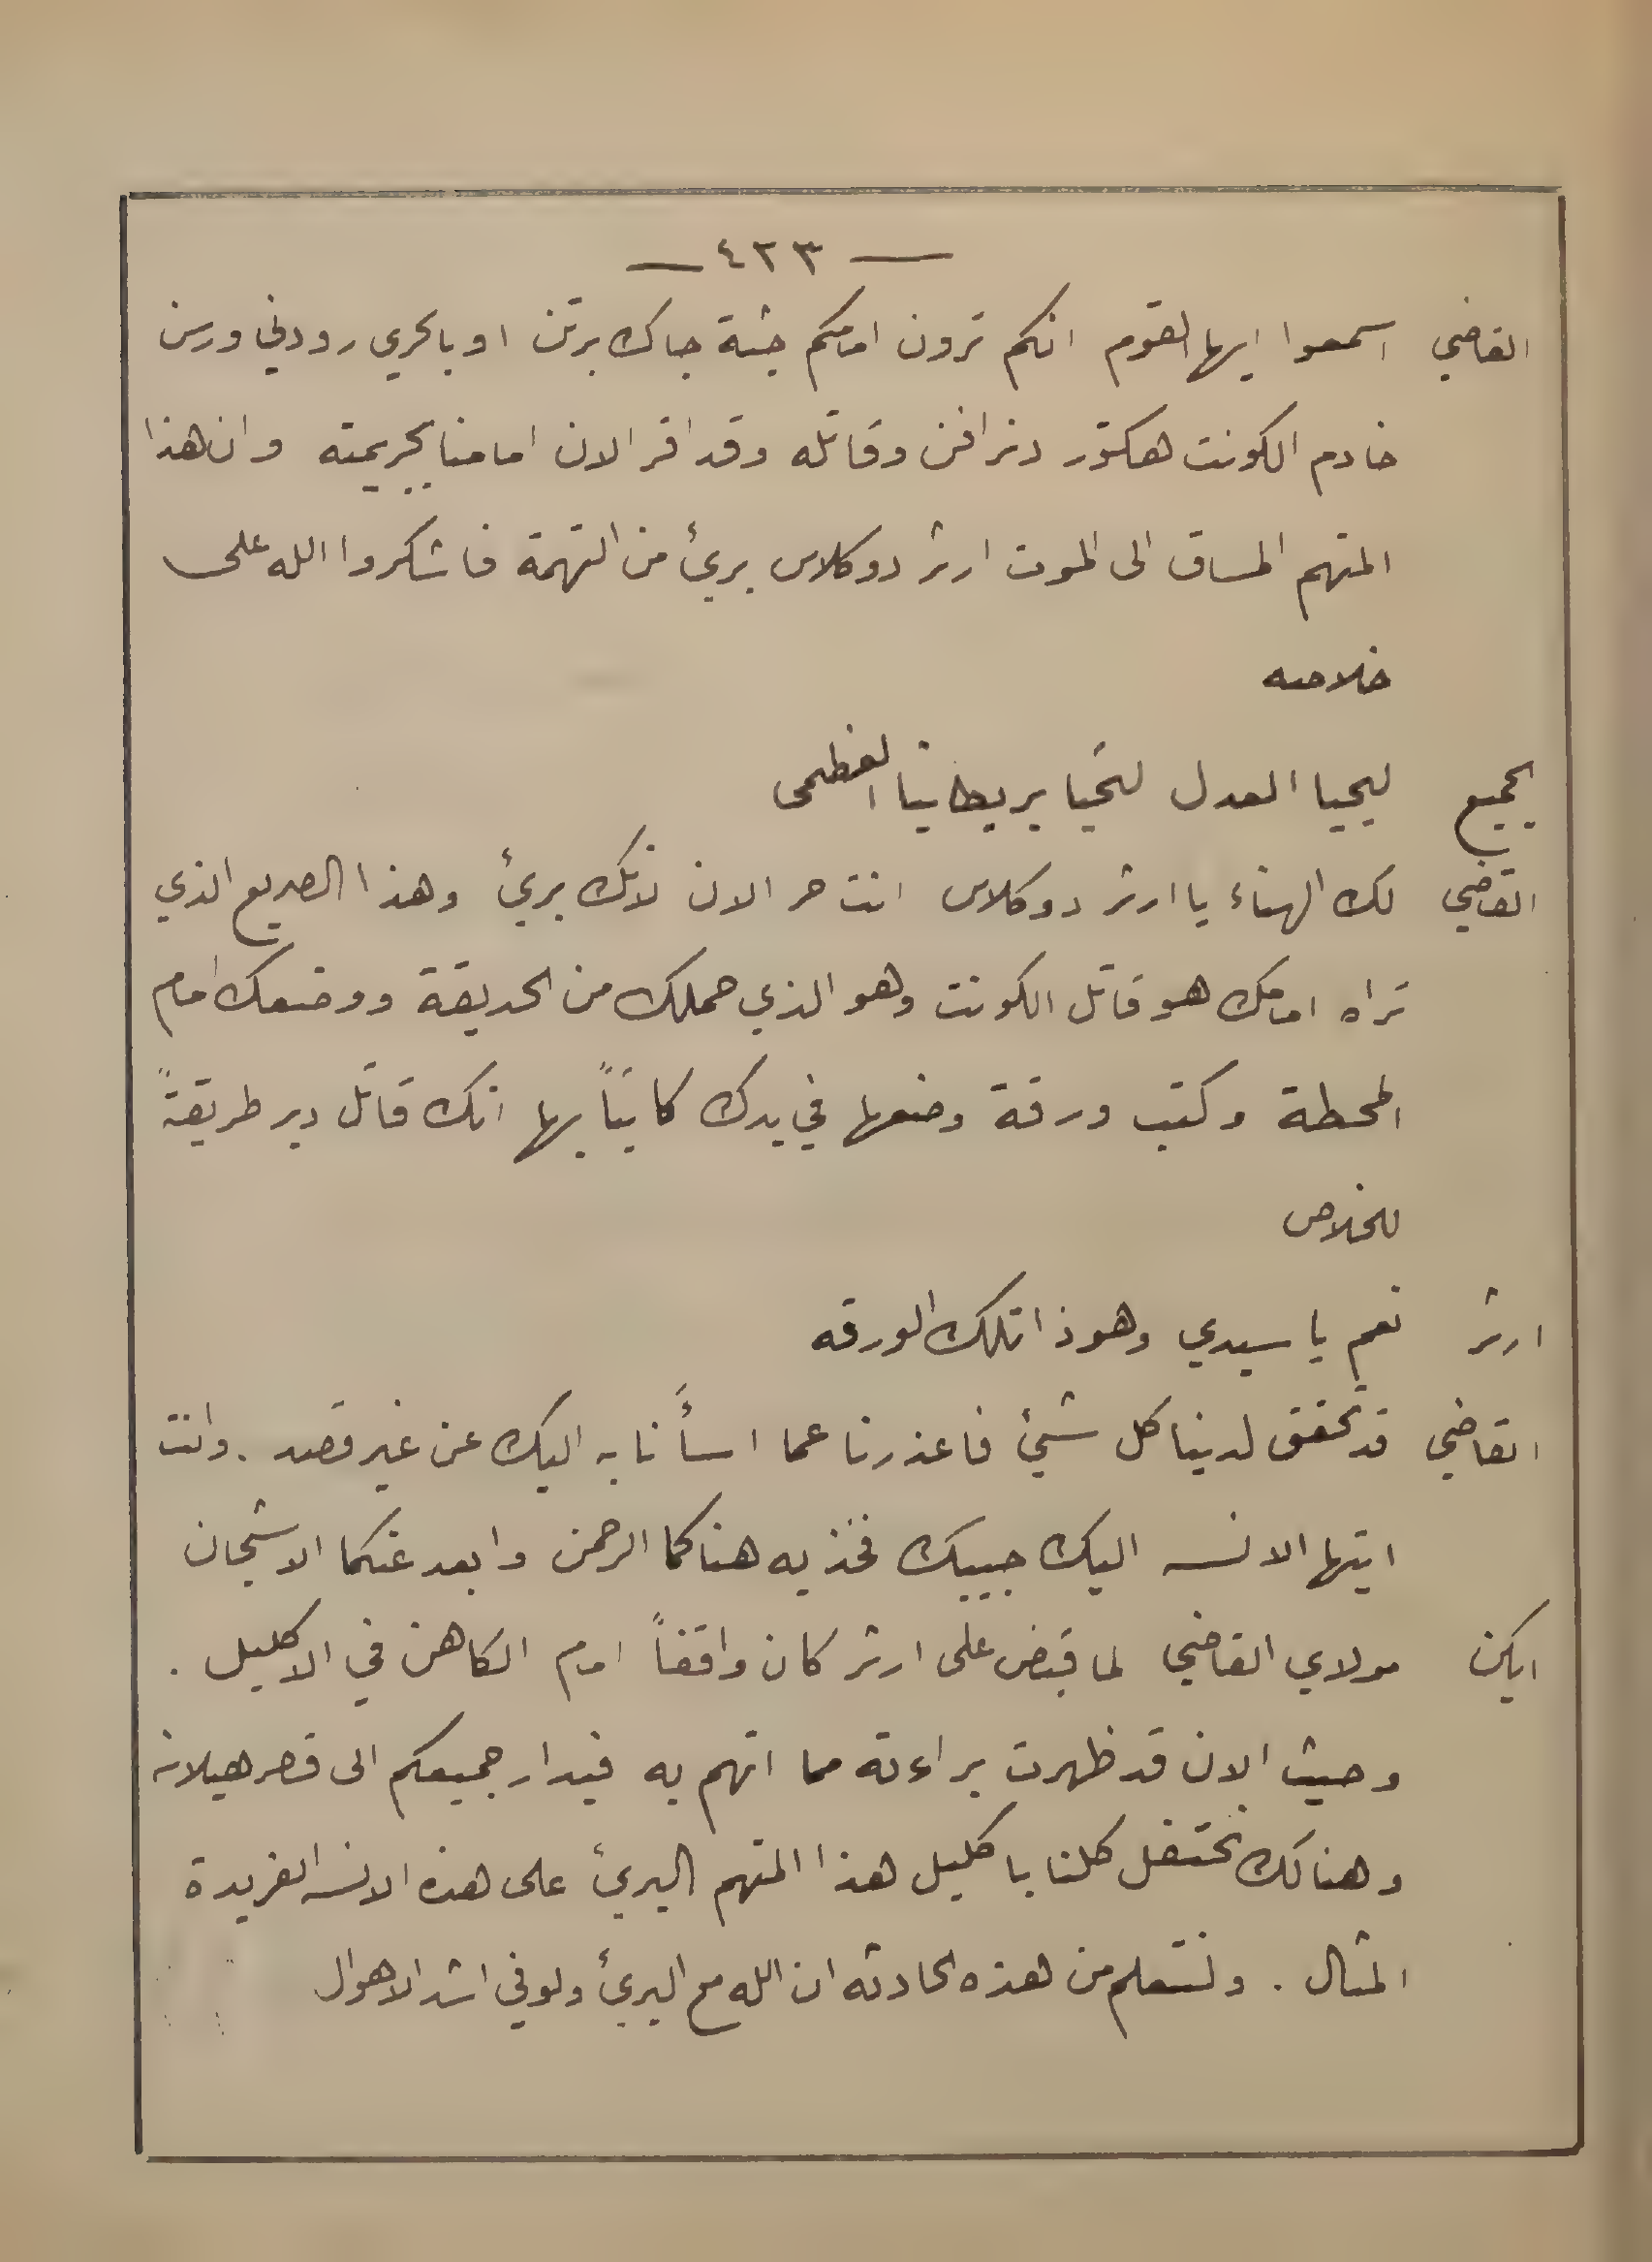 — ٤٢٣ —
القاضي اسمعوا ايها القوم انكم ترون امامكم جثة جاك برتن او بالحري رودني ورسن
خادم الكونت هكتور دنرافن وقاتله وقد اقر الان امامنا بجريمته وان هذا
المتهم المساق الى الموت ارثر دوكلاس بريئ من التهمة فاشكروا الله على
خلاصه
الجميع ليحيا العدل لتحيا بريطانيا العظمى
القاضي لك الهناء يا ارثر دوكلاس انت حر الان لانك بريئ وهذا الصريع الذي
تراه امامك هو قاتل الكونت وهو الذي حملك من الحديقة ووضعك امام
المحطة وكتب ورقة وضعها في يدك كاتباً بها انك قاتل دبر طريقةً
للخلاص
ارثر نعم يا سيدي وهوذا تلك الورقه
القاضي قد تحقق لدينا كل شيئ فاعذرنا عما اسأنا به اليك عن غير قصد . وانت
ايتها الانسه اليك حبيبك فخذيه هناكما الرحمن وابعد عنكما الاشجان
ايكن مولاي القاضي لما قبض على ارثر كان واقفاً امام الكاهن في الاكليل .
وحيث الان قد ظهرت براءته مما اتهم به فبدار جميعكم الى قصر هيلانه
وهنالك نحتفل كلنا باكليل هذا المتهم البريئ على هذه الانسه الفريدة
المثال . ولنتعلم من هذه الحادثه ان الله مع البريئ ولو في اشد الاهوال